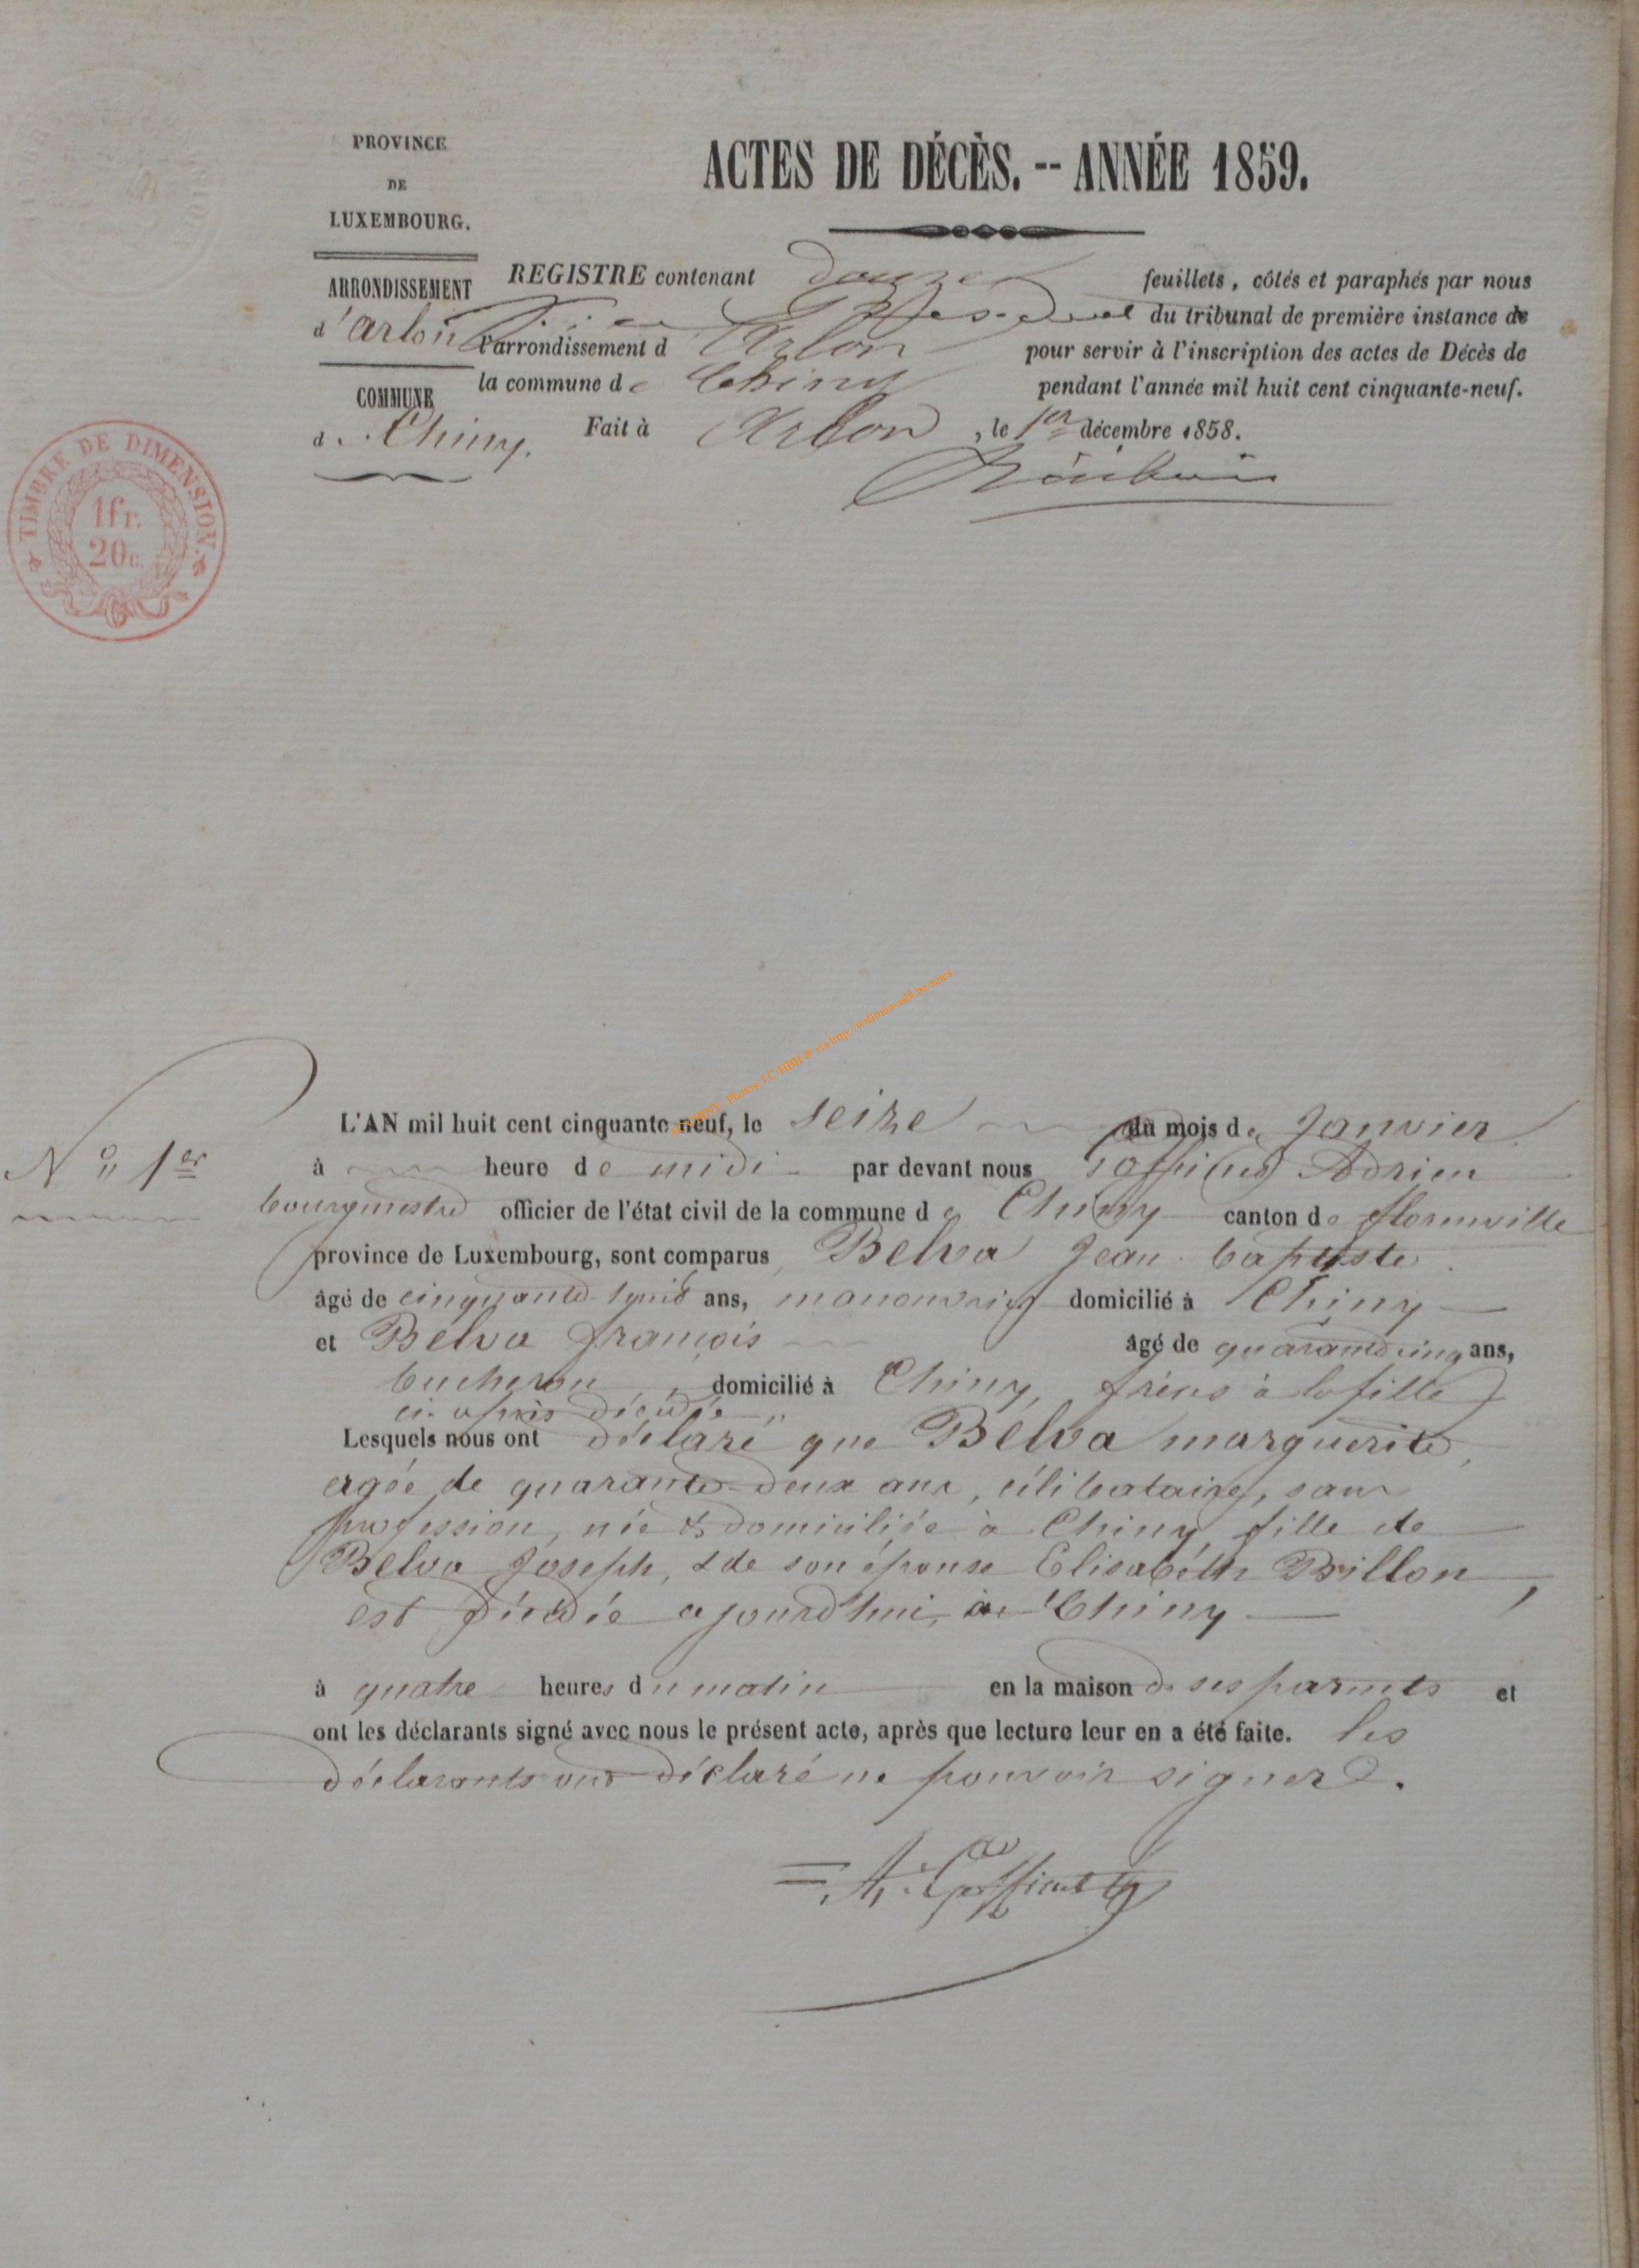 PROVINCE
DE
LUXEMBOURG.
ARRONDISSEMENT
d'Arlon
COMMUNE
de Chiny.
ACTES DE DÉCÈS. -- ANNÉE 1859.
REGISTRE contenant douze feuillets, côtés et paraphés par nous
Président du tribunal de première instance de
l'arrondissement d Arlon pour servir à l'inscription des actes de Décès de
la commune de Chiny pendant l'année mil huit cent cinquante-neuf.
Fait à Arlon, le 1er décembre 1858.
TIMBRE DE DIMENSION.
1fr.
20c.
N° 1er
L'AN mil huit cent cinquante neuf, le seize du mois de Janvier
à heure de midi par devant nous Adrien
bourgmestre officier de l'état civil de la commune de Chiny canton de florenville
province de Luxembourg, sont comparus Belva Jean baptiste
âgé de cinquante ans, manouvrier domicilié à Chiny
et Belva françois âgé de quarante cinq ans,
bucheron, domicilié à Chiny, frères à la fille
ci-après décédée
Lesquels nous ont déclaré que Belva marguerite,
agée de quarante-deux ans, célibataire, sans
profession, née & domiciliée à Chiny, fille de
Belva Joseph, & de son épouse Elisabéth Brillon,
est décédée ajourd'hui, à Chiny
à quatre heures du matin en la maison de ses parents et
ont les déclarants signé avec nous le présent acte, après que lecture leur en a été faite. les
déclarants ont déclaré ne pouvoir signer.